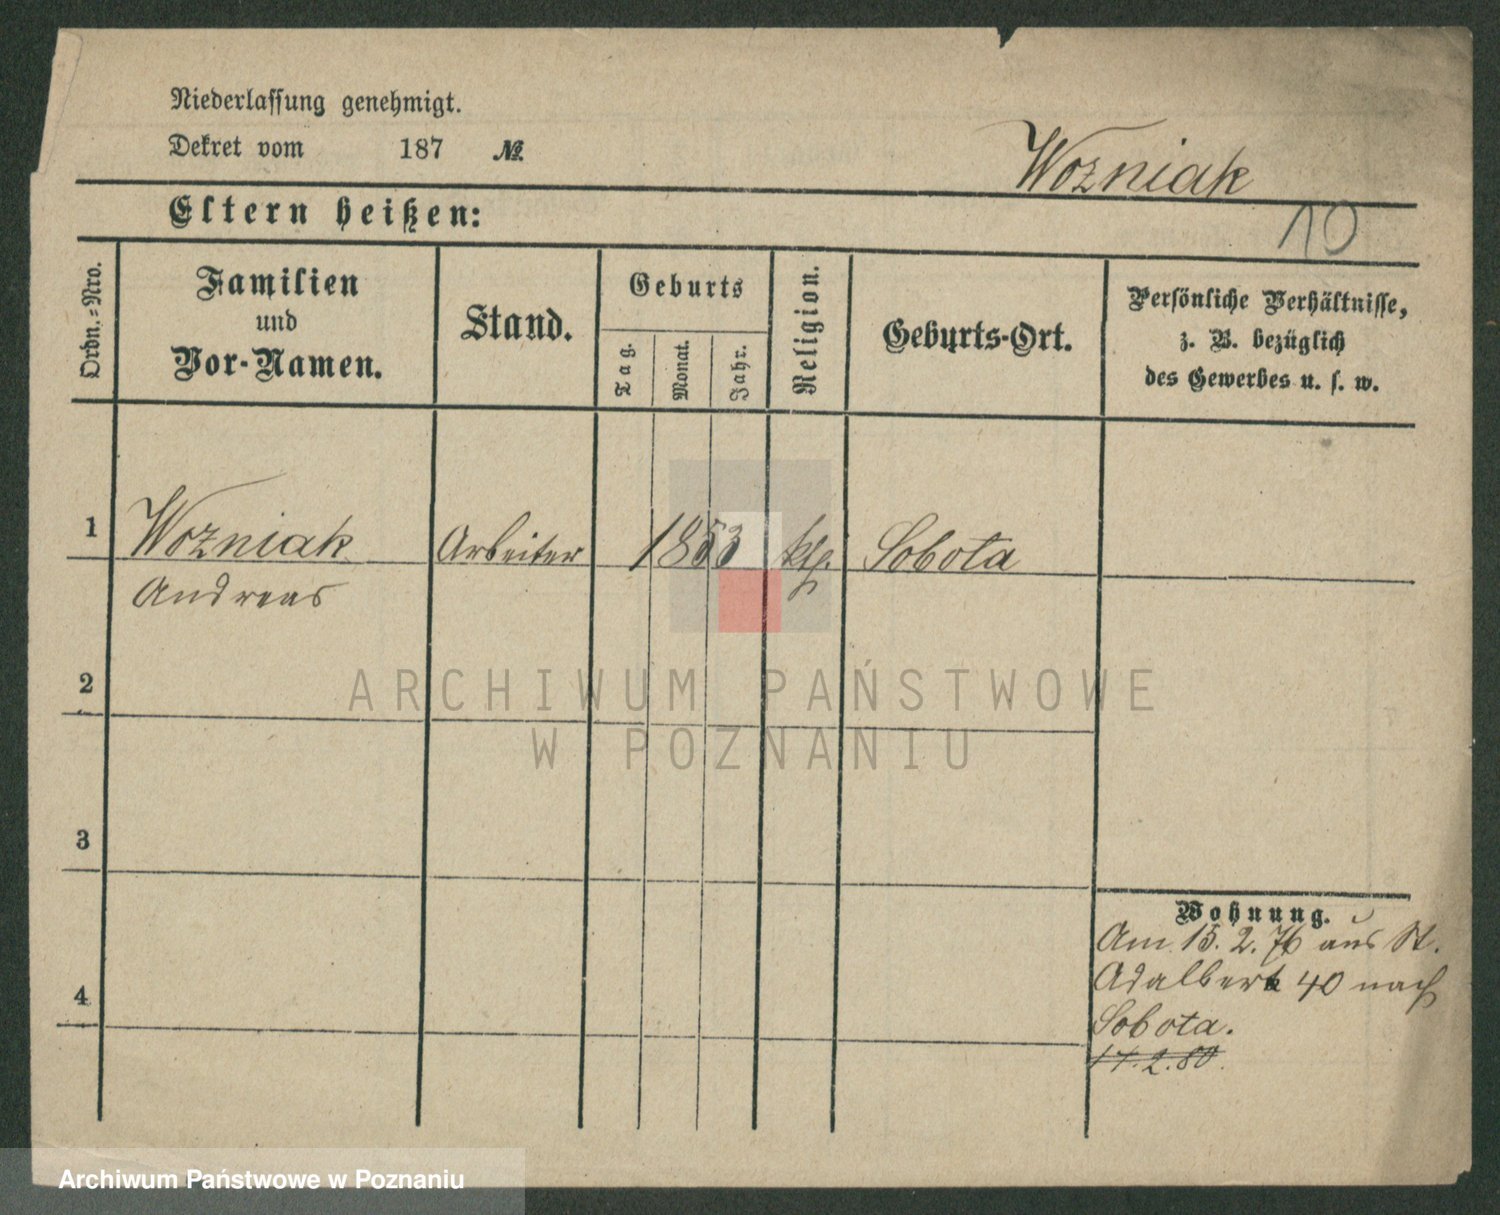 Niederlassung genehmigt.
Dekret vom 187 №
Wozniak
Eltern heißen:
10
Ordn.-Nro.
Familien
und
Vor-Namen.
Stand.
Geburts
Tag.
Monat.
Jahr.
Religion.
Geburts-Ort.
Persönliche Verhältnisse,
z. B. bezüglich
des Gewerbes u. s. w.
1 Wozniak Arbeiter 1853 kth. Sobota
Andreas
2
3
4
Wohnung.
Am 15. 2. 76 aus St.
Adalbert 40 nach
Sobota.
17.2.80.
ARCHIWUM PAŃSTWOWE
W POZNANIU
Archiwum Państwowe w Poznaniu